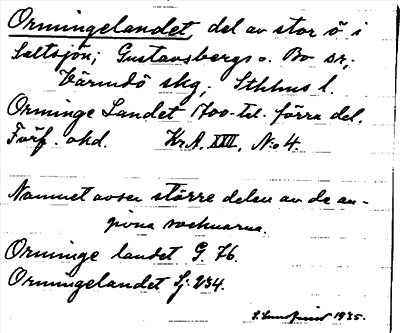 Ormingelandet del av stor ö i
Saltsjön; Gustavsbergs o. Bo sr,
Värmdö skg, Sthlms l.
Orminge Landet 1700-t:l. förra del.
Förf. okd. Kr.A. XXII, N:o 4.
Namnet avser större delen av de an-
givna socknarna.
Orminge landet G. 76.
Ormingelandet Sj. 234.
1935.